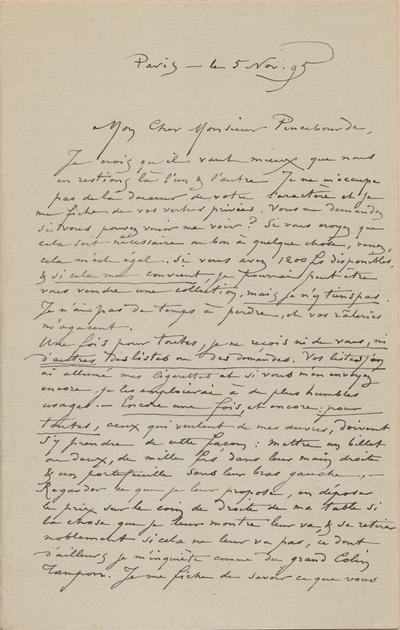 Paris – le 5 Nov. 95
Mon Cher Monsieur Pincebourde,
Je crois qu'il vaut mieux que nous
en restions là l'un & l'autre. Je ne m'occupe
pas de la douceur de votre caractère et je
me fiche de vos vertus privées. Vous me demandez
si vous pouvez venir me voir? Si vous croyez que
cela soit nécessaire ou bon à quelque chose, venez,
cela m'est égal. Si vous avez 1200 frs disponibles,
& si cela me convient, je pourrai peut être
vous vendre une collection, mais je n'y tiens pas.
Je n'ai pas de temps à perdre, et vos râleries
m'agacent.
Une fois pour toutes, je ne reçois ni de vous, ni
d'autres des listes ou des demandes. Vos listes j'en
ai allumé mes cigarettes et si vous m'en envoyez
encore, je les emploierai à de plus humbles
usages. – Encore une fois, et encore: pour
toutes, ceux qui veulent de mes œuvres, doivent
s'y prendre de cette façon: mettre un billet
ou deux, de mille frs dans leur main droite
& un portefeuille sous leur bras gauche, –
Regarder ce que je leur propose, en déposer
le prix sur le coin de droite de ma table si
la chose que je leur montre leur va, & se retirer
noblement si cela ne leur va pas, ce dont
d'ailleurs je m'inquiète comme du grand Colin
Tampon. Je me fiche de savoir ce que vous